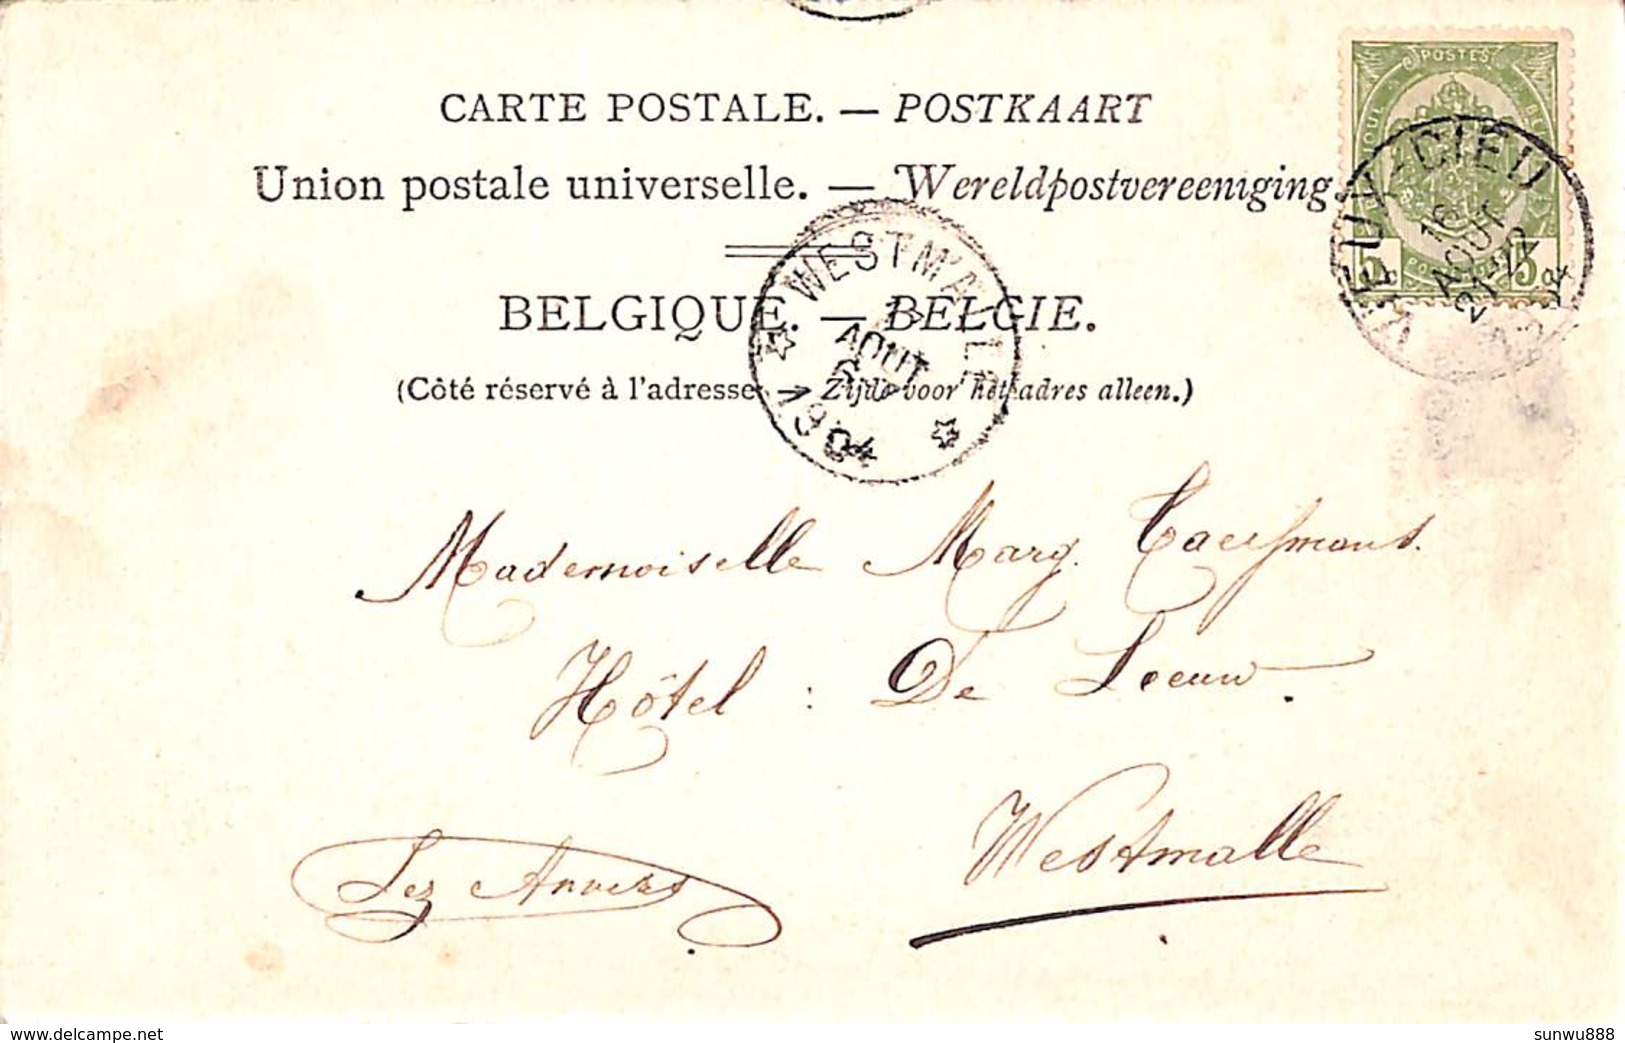 CARTE POSTALE. — POSTKAART
Union postale universelle. — Wereldpostvereeniging.
BELGIQUE. — BELGIE.
(Côté réservé à l'adresse. — Zijde voor het adres alleen.)
POSTES
5 5
VIEUX-DIEU
16
AOUT
WESTMALLE
17
AOUT
1904
Mademoiselle Marg.
Hôtel : De Leeuw.
Westmalle
Lez Anvers
delcampe.net
sunwu888